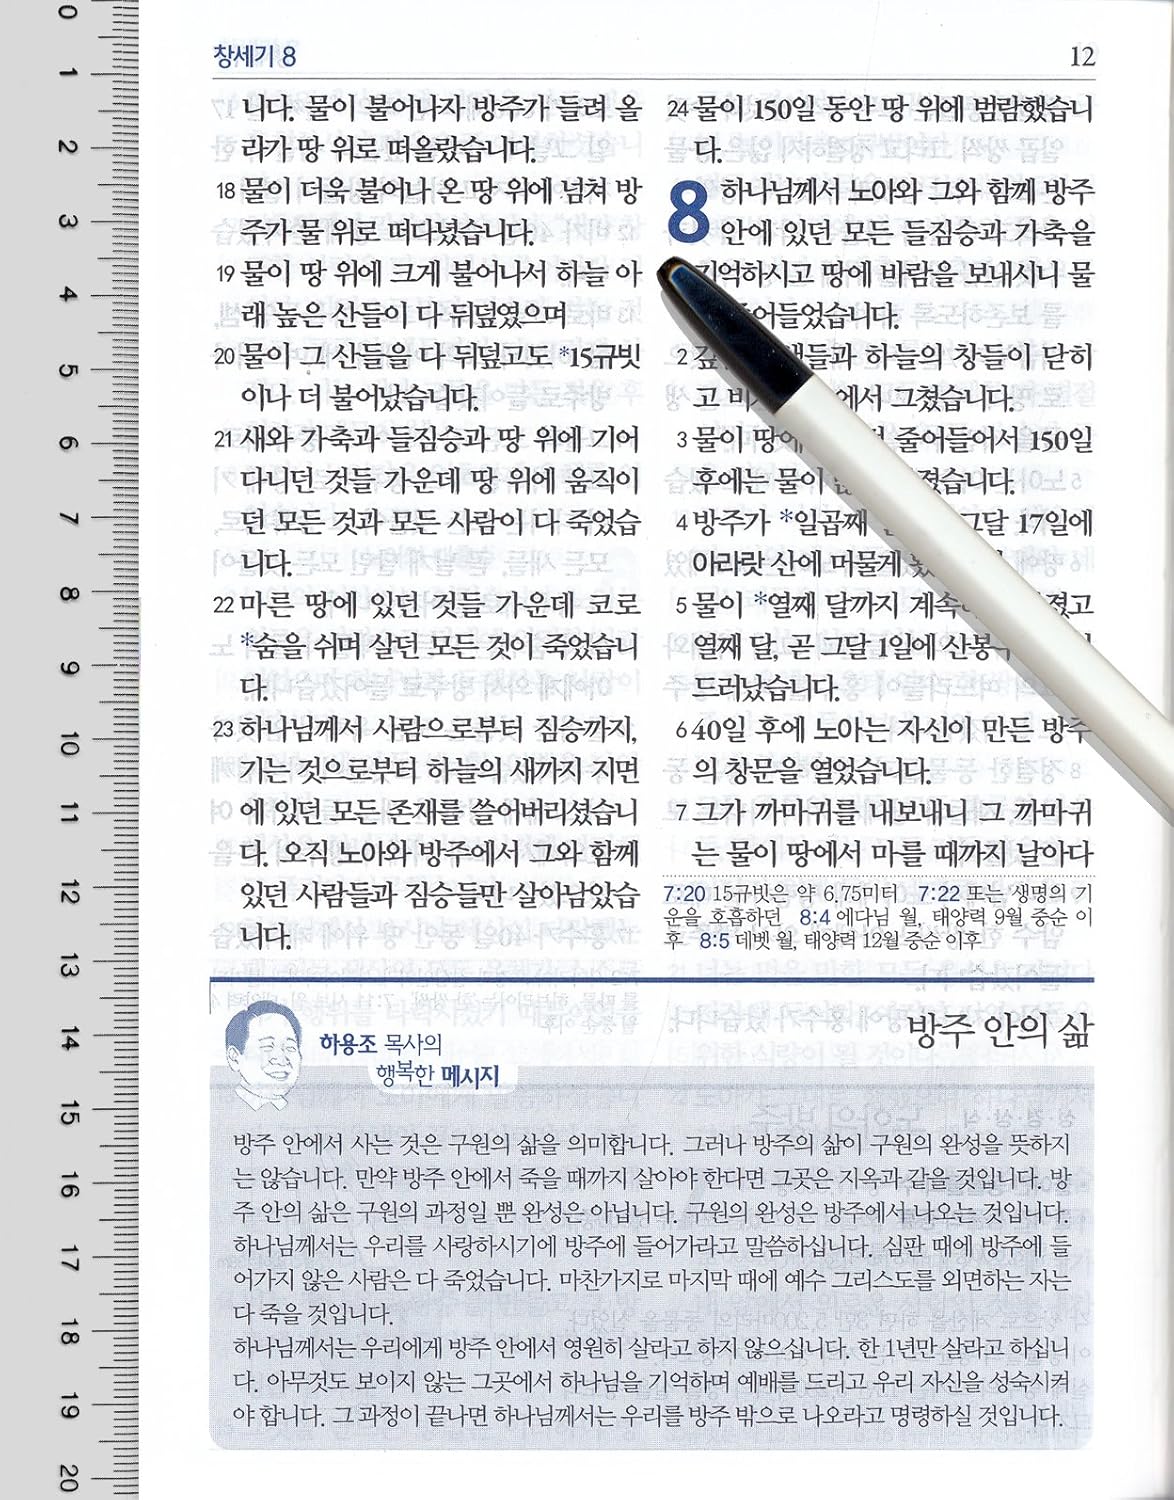 0
1
2
3
4
5
6
7
8
9
10
11
12
13
14
15
16
17
18
19
20
창세기 8
12
니다. 물이 불어나자 방주가 들려 올
라가 땅 위로 떠올랐습니다.
18 물이 더욱 불어나 온 땅 위에 넘쳐 방
주가 물 위로 떠다녔습니다.
19 물이 땅 위에 크게 불어나서 하늘 아
래 높은 산들이 다 뒤덮였으며
20 물이 그 산들을 다 뒤덮고도 *15규빗
이나 더 불어났습니다.
21 새와 가축과 들짐승과 땅 위에 기어
다니던 것들 가운데 땅 위에 움직이
던 모든 것과 모든 사람이 다 죽었습
니다.
22 마른 땅에 있던 것들 가운데 코로
*숨을 쉬며 살던 모든 것이 죽었습니
다.
23 하나님께서 사람으로부터 짐승까지,
기는 것으로부터 하늘의 새까지 지면
에 있던 모든 존재를 쓸어버리셨습니
다. 오직 노아와 방주에서 그와 함께
있던 사람들과 짐승들만 살아남았습
니다.
24 물이 150일 동안 땅 위에 범람했습니
다.
8 하나님께서 노아와 그와 함께 방주
안에 있던 모든 들짐승과 가축을
기억하시고 땅에 바람을 보내시니 물
줄어들었습니다.
2 하늘의 창들이 닫히
고 그쳤습니다.
3 물이 땅에 줄어들어서 150일
후에는 물이
4 방주가 *일곱째 그달 17일에
아라랏 산에 머물게
5 물이 *열째 달까지
열째 달, 곧 그달 1일에
드러났습니다.
6 40일 후에 노아는 자신이 만든 방주
의 창문을 열었습니다.
7 그가 까마귀를 내보내니 그 까마귀
는 물이 땅에서 마를 때까지 날아다
7:20 15규빗은 약 6.75미터 7:22 또는 생명의 기
운을 호흡하던 8:4 에다님 월, 태양력 9월 중순 이
후 8:5 데벳 월, 태양력 12월 중순 이후
하용조 목사의
행복한 메시지
방주 안의 삶
방주 안에서 사는 것은 구원의 삶을 의미합니다. 그러나 방주의 삶이 구원의 완성을 뜻하지
는 않습니다. 만약 방주 안에서 죽을 때까지 살아야 한다면 그곳은 지옥과 같을 것입니다. 방
주 안의 삶은 구원의 과정일 뿐 완성은 아닙니다. 구원의 완성은 방주에서 나오는 것입니다.
하나님께서는 우리를 사랑하시기에 방주에 들어가라고 말씀하십니다. 심판 때에 방주에 들
어가지 않은 사람은 다 죽었습니다. 마찬가지로 마지막 때에 예수 그리스도를 외면하는 자는
다 죽을 것입니다.
하나님께서는 우리에게 방주 안에서 영원히 살라고 하지 않으십니다. 한 1년만 살라고 하십니
다. 아무것도 보이지 않는 그곳에서 하나님을 기억하며 예배를 드리고 우리 자신을 성숙시켜
야 합니다. 그 과정이 끝나면 하나님께서는 우리를 방주 밖으로 나오라고 명령하실 것입니다.